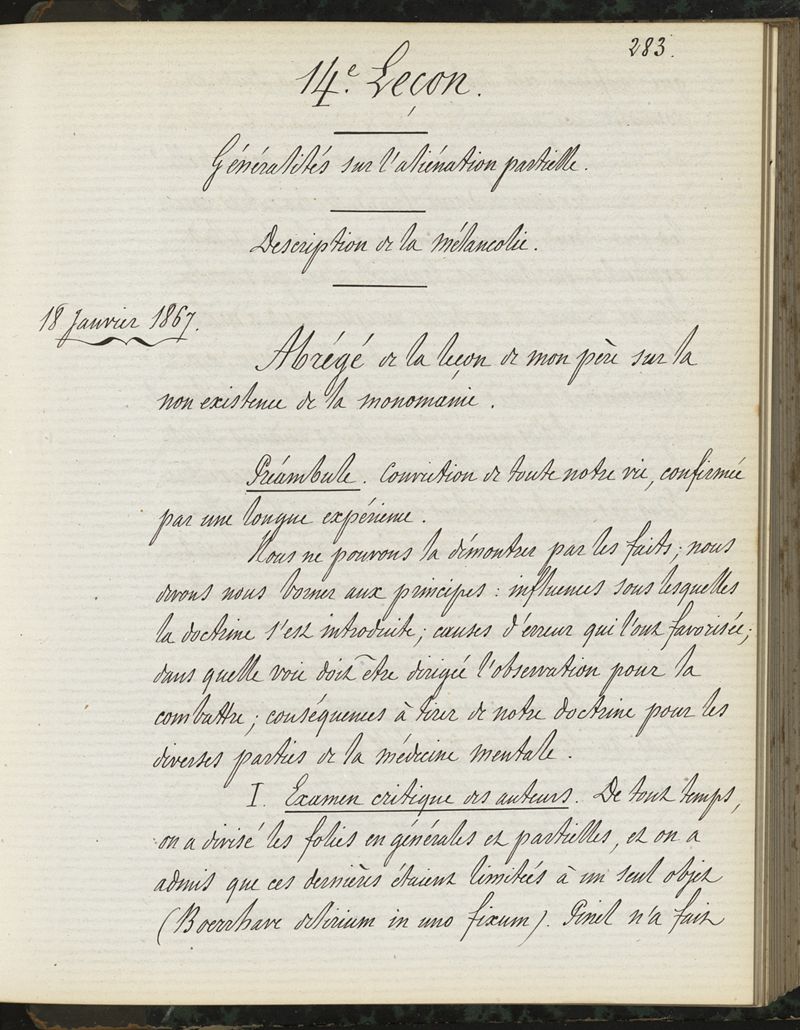 283.
14e. Leçon.
Généralités sur l'aliénation partielle.
Description de la mélancolie.
18 Janvier 1867.
Abrégé de la leçon de mon père sur la
non existence de la monomanie.
Préambule. Conviction de toute notre vie, confirmée
par une longue expérience.
Nous ne pouvons la démontrer par les faits; nous
devons nous borner aux principes: influences sous lesquelles
la doctrine s'est introduite; causes d'erreur qui l'ont favorisée;
dans quelle voie doit être dirigée l'observation pour la
combattre; conséquences à tirer de notre doctrine pour les
diverses parties de la médecine mentale.
I. Examen critique des auteurs. De tout temps,
on a divisé les folies en générales et partielles, et on a
admis que ces dernières étaient limitées à un seul objet
(Boerrhave delirium in uno fixum). Pinel n'a fait